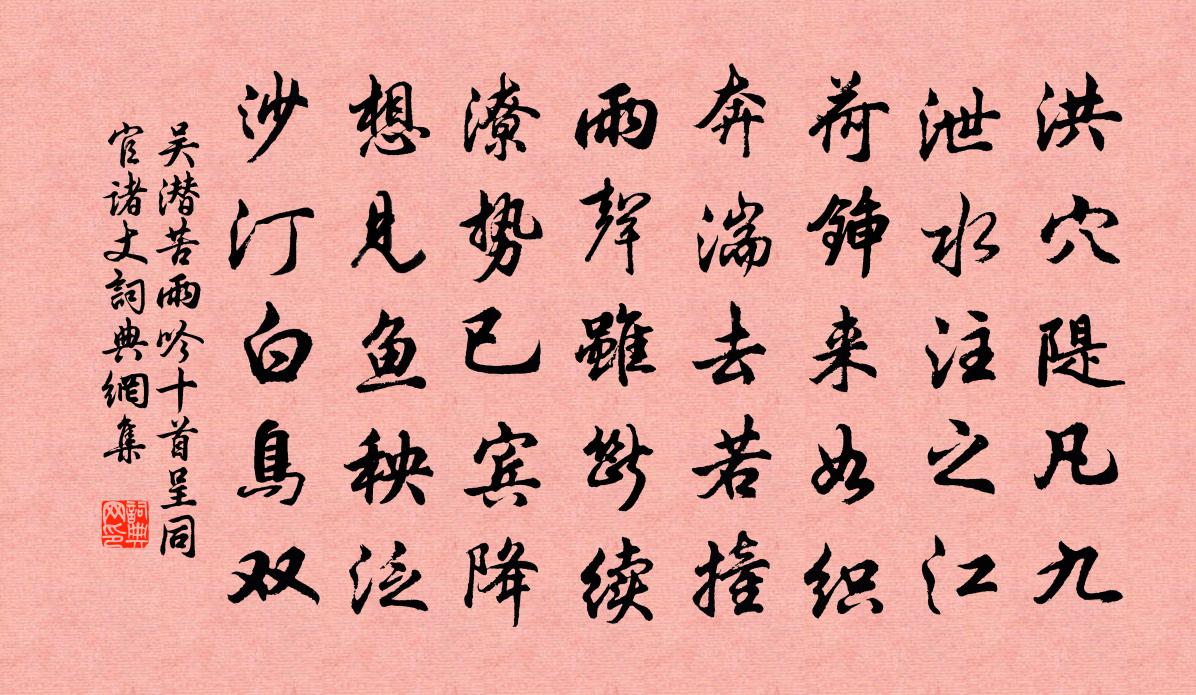 洪穴隄凡九
泄水注之江
荷锸来如织
奔湍去若撞
雨聲雖断续
潦势已宾降
想见鱼秧泛
沙汀白鳥双
吴潜苦雨吟十首呈同
官诸丈詞典網集
詞典网印